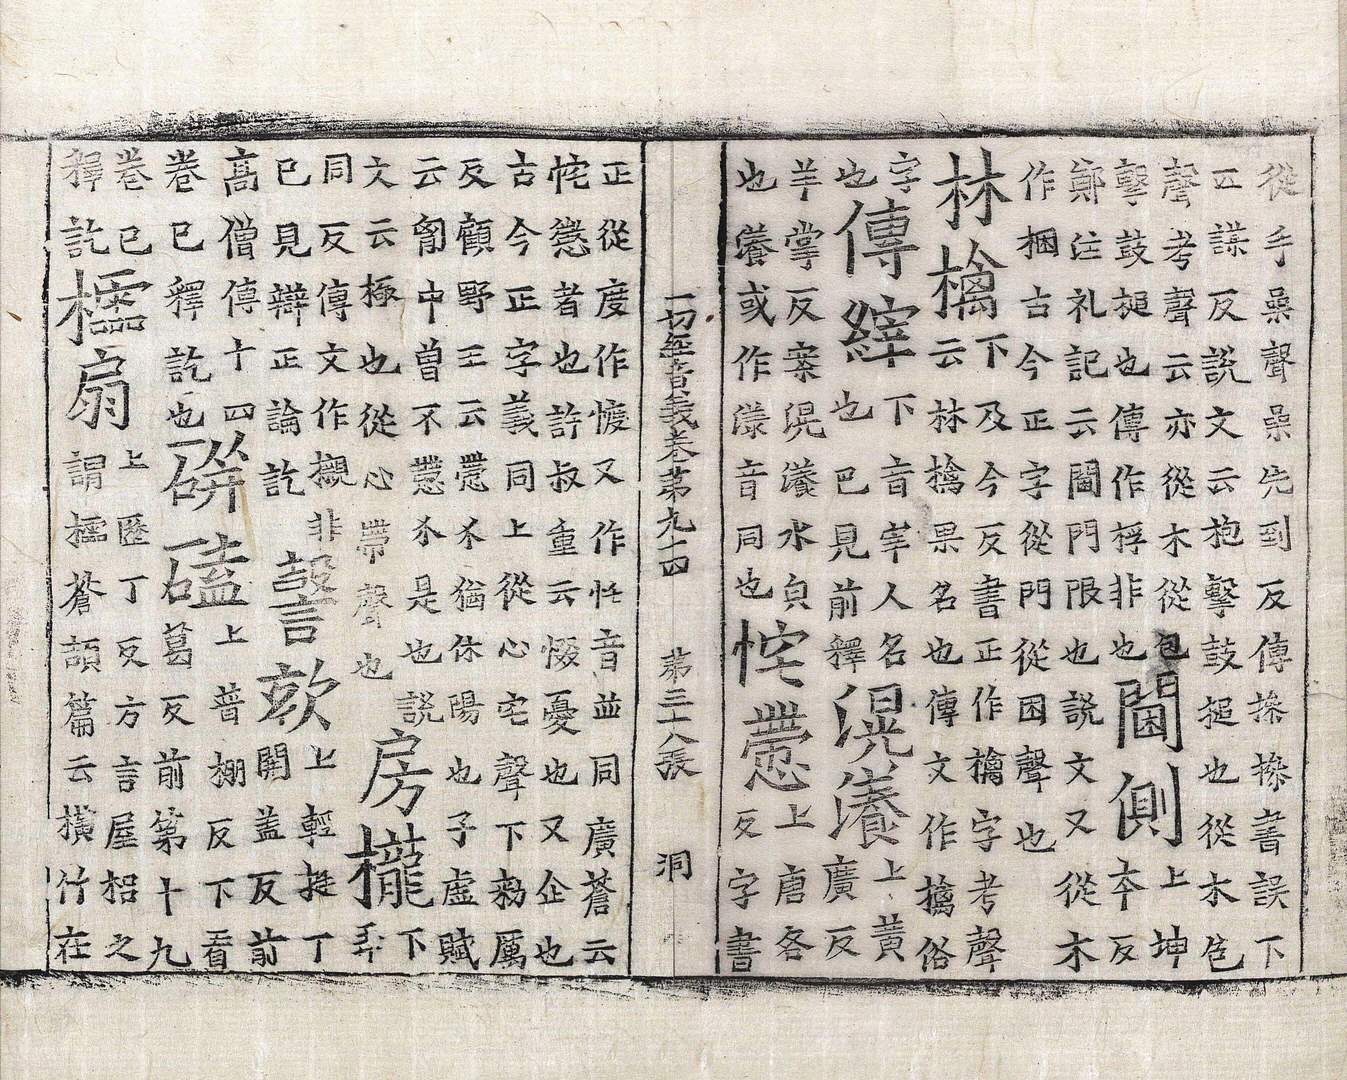 從手喿聲喿先到反傳㨄㨄書誤下
謀反說文云枹擊鼓搥也從木包
聲考聲云亦從木從包
擊鼓搥也傳作桴非也
閫側
上坤
本反
鄭注礼記云閫門限也說文又從木
作梱古今正字從門從困聲也
林檎
下及今反書正作檎字考聲
云林檎果名也傳文作擒俗
字
也
傳縡
下音宰人名
也巳見前釋
滉瀁
上黃
廣反
羊掌反案滉瀁水皃
也瀁或作漾音同也
㤞懘
上唐各
反字書
一切經音義卷苐九十四 苐三十八張 洞
正從度作㦜又作㤞音並同廣蒼云
㤞懘者也許叔重云惙憂也又企也
古今正字義同上從心宅聲下勑厲
反顧野王云懘尒猶休陽也子虛賦
云胷中曾不懘尒是也說
文云極也從心帶聲也
房櫳
下
弄
同反傳文作櫬非
巳見辯正論訖
謦欬
上輕挺丁
開蓋反前
高僧傳十四
卷巳釋訖也
硑磕
上普棚反下看
葛反前第十九
卷巳
釋訖
櫺扇
上歷丁反方言屋梠之
謂櫺蒼頡篇云橫竹在